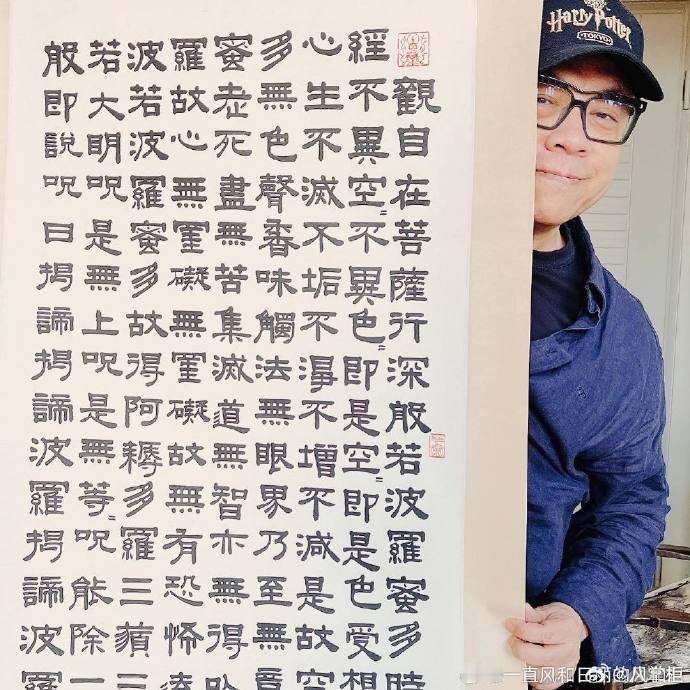 般若波羅蜜多心經
觀自在菩薩行深般若波羅蜜多時
不異空〻不異色〻即是空〻即是色受想
生不滅不垢不淨不增不減是故空
無色聲香味觸法無眼界乃至無意
老死盡無苦集滅道無智亦無得以
故心無罣礙無罣礙故無有恐怖遠
若波羅蜜多故得阿耨多羅三藐三
大明呪是無上呪是無等〻呪能除一
即說呪曰揭諦揭諦波羅揭諦波羅
Harry Potter
TOKYO
一直风和日丽的风掌柜